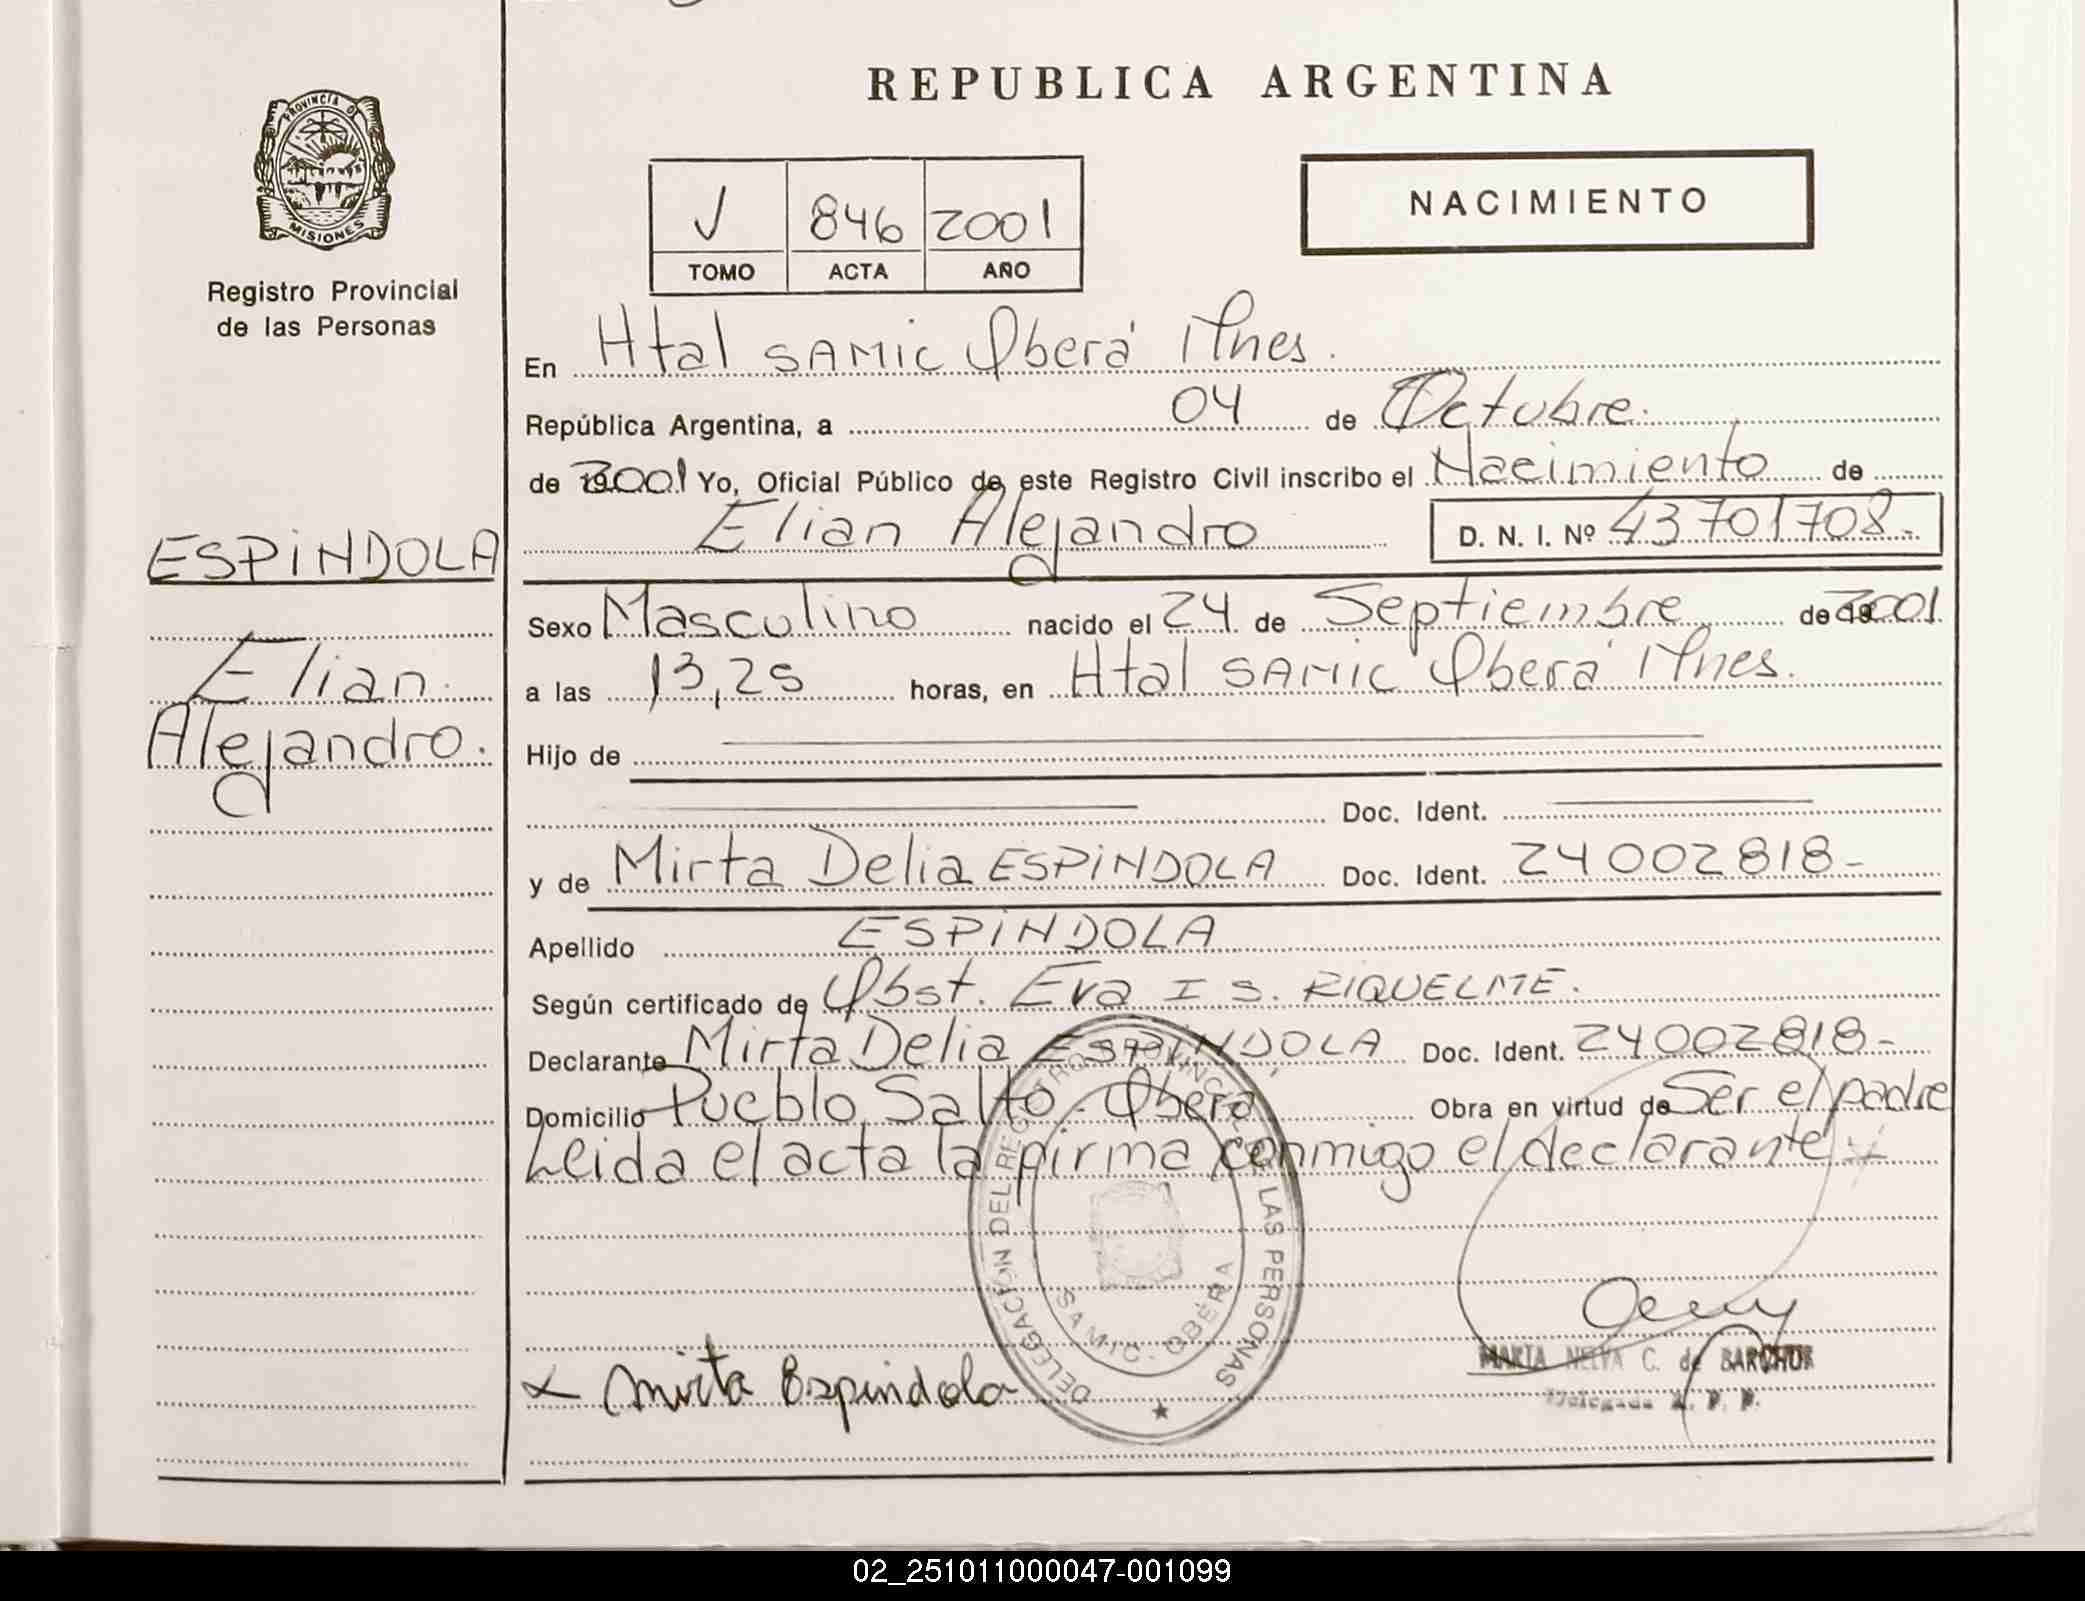 REPUBLICA ARGENTINA
PROVINCIA DE MISIONES
Registro Provincial
de las Personas
NACIMIENTO
V 846 2001
TOMO ACTA AÑO
En Htal SAMIC Oberá Mnes.
República Argentina, a 04 de Octubre.
de 2001 Yo, Oficial Público de este Registro Civil inscribo el Nacimiento de
Elian Alejandro D. N. I. Nº 43701708.-
ESPINDOLA
Elian
Alejandro.
Sexo Masculino nacido el 24 de Septiembre de 2001.
a las 13,25 horas, en Htal SAMIC Oberá Mnes.
Hijo de
Doc. Ident.
y de Mirta Delia ESPINDOLA Doc. Ident. 24002818-
Apellido ESPINDOLA
Según certificado de Obst. Eva I S. RIQUELME.
Declarante Mirta Delia ESPINDOLA Doc. Ident. 24002818-
Domicilio Pueblo Salto. Oberá Obra en virtud de Ser el padre
Leida el acta la firma conmigo el declarante
DELEGACION DEL REGISTRO PROVINCIAL DE LAS PERSONAS
SAMIC - OBERA
Mirta Espindola
MARTA NELVA C. de BARCHUK
Delegada R. P. P.
02_251011000047-001099